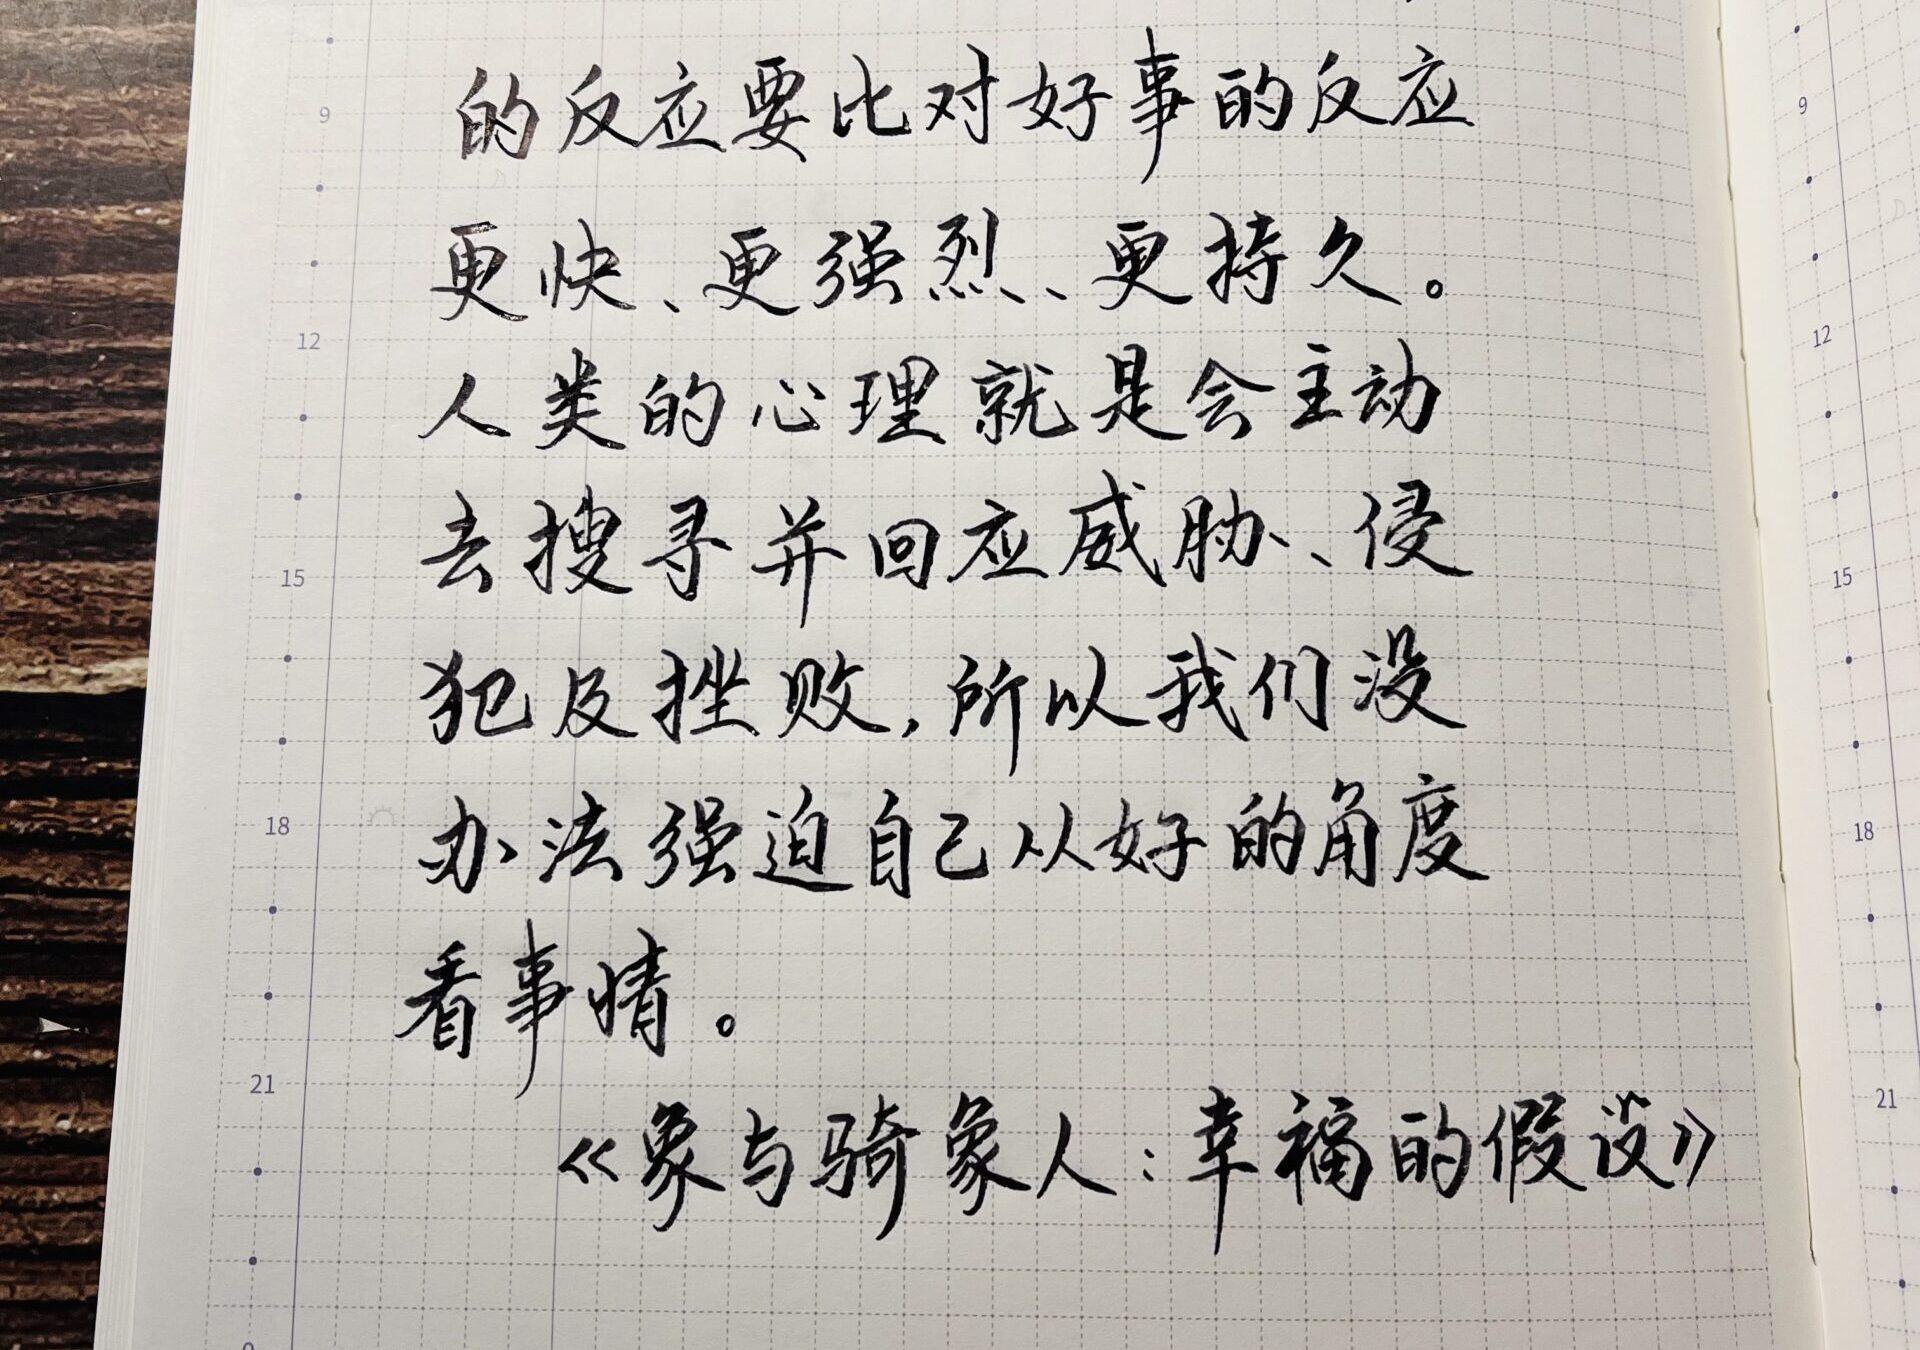 的反应要比对好事的反应
更快、更强烈、更持久。
人类的心理就是会主动
去搜寻并回应威胁、侵
犯及挫败,所以我们没
办法强迫自己从好的角度
看事情。
《象与骑象人:幸福的假设》
9
12
15
18
21
9
12
15
18
21